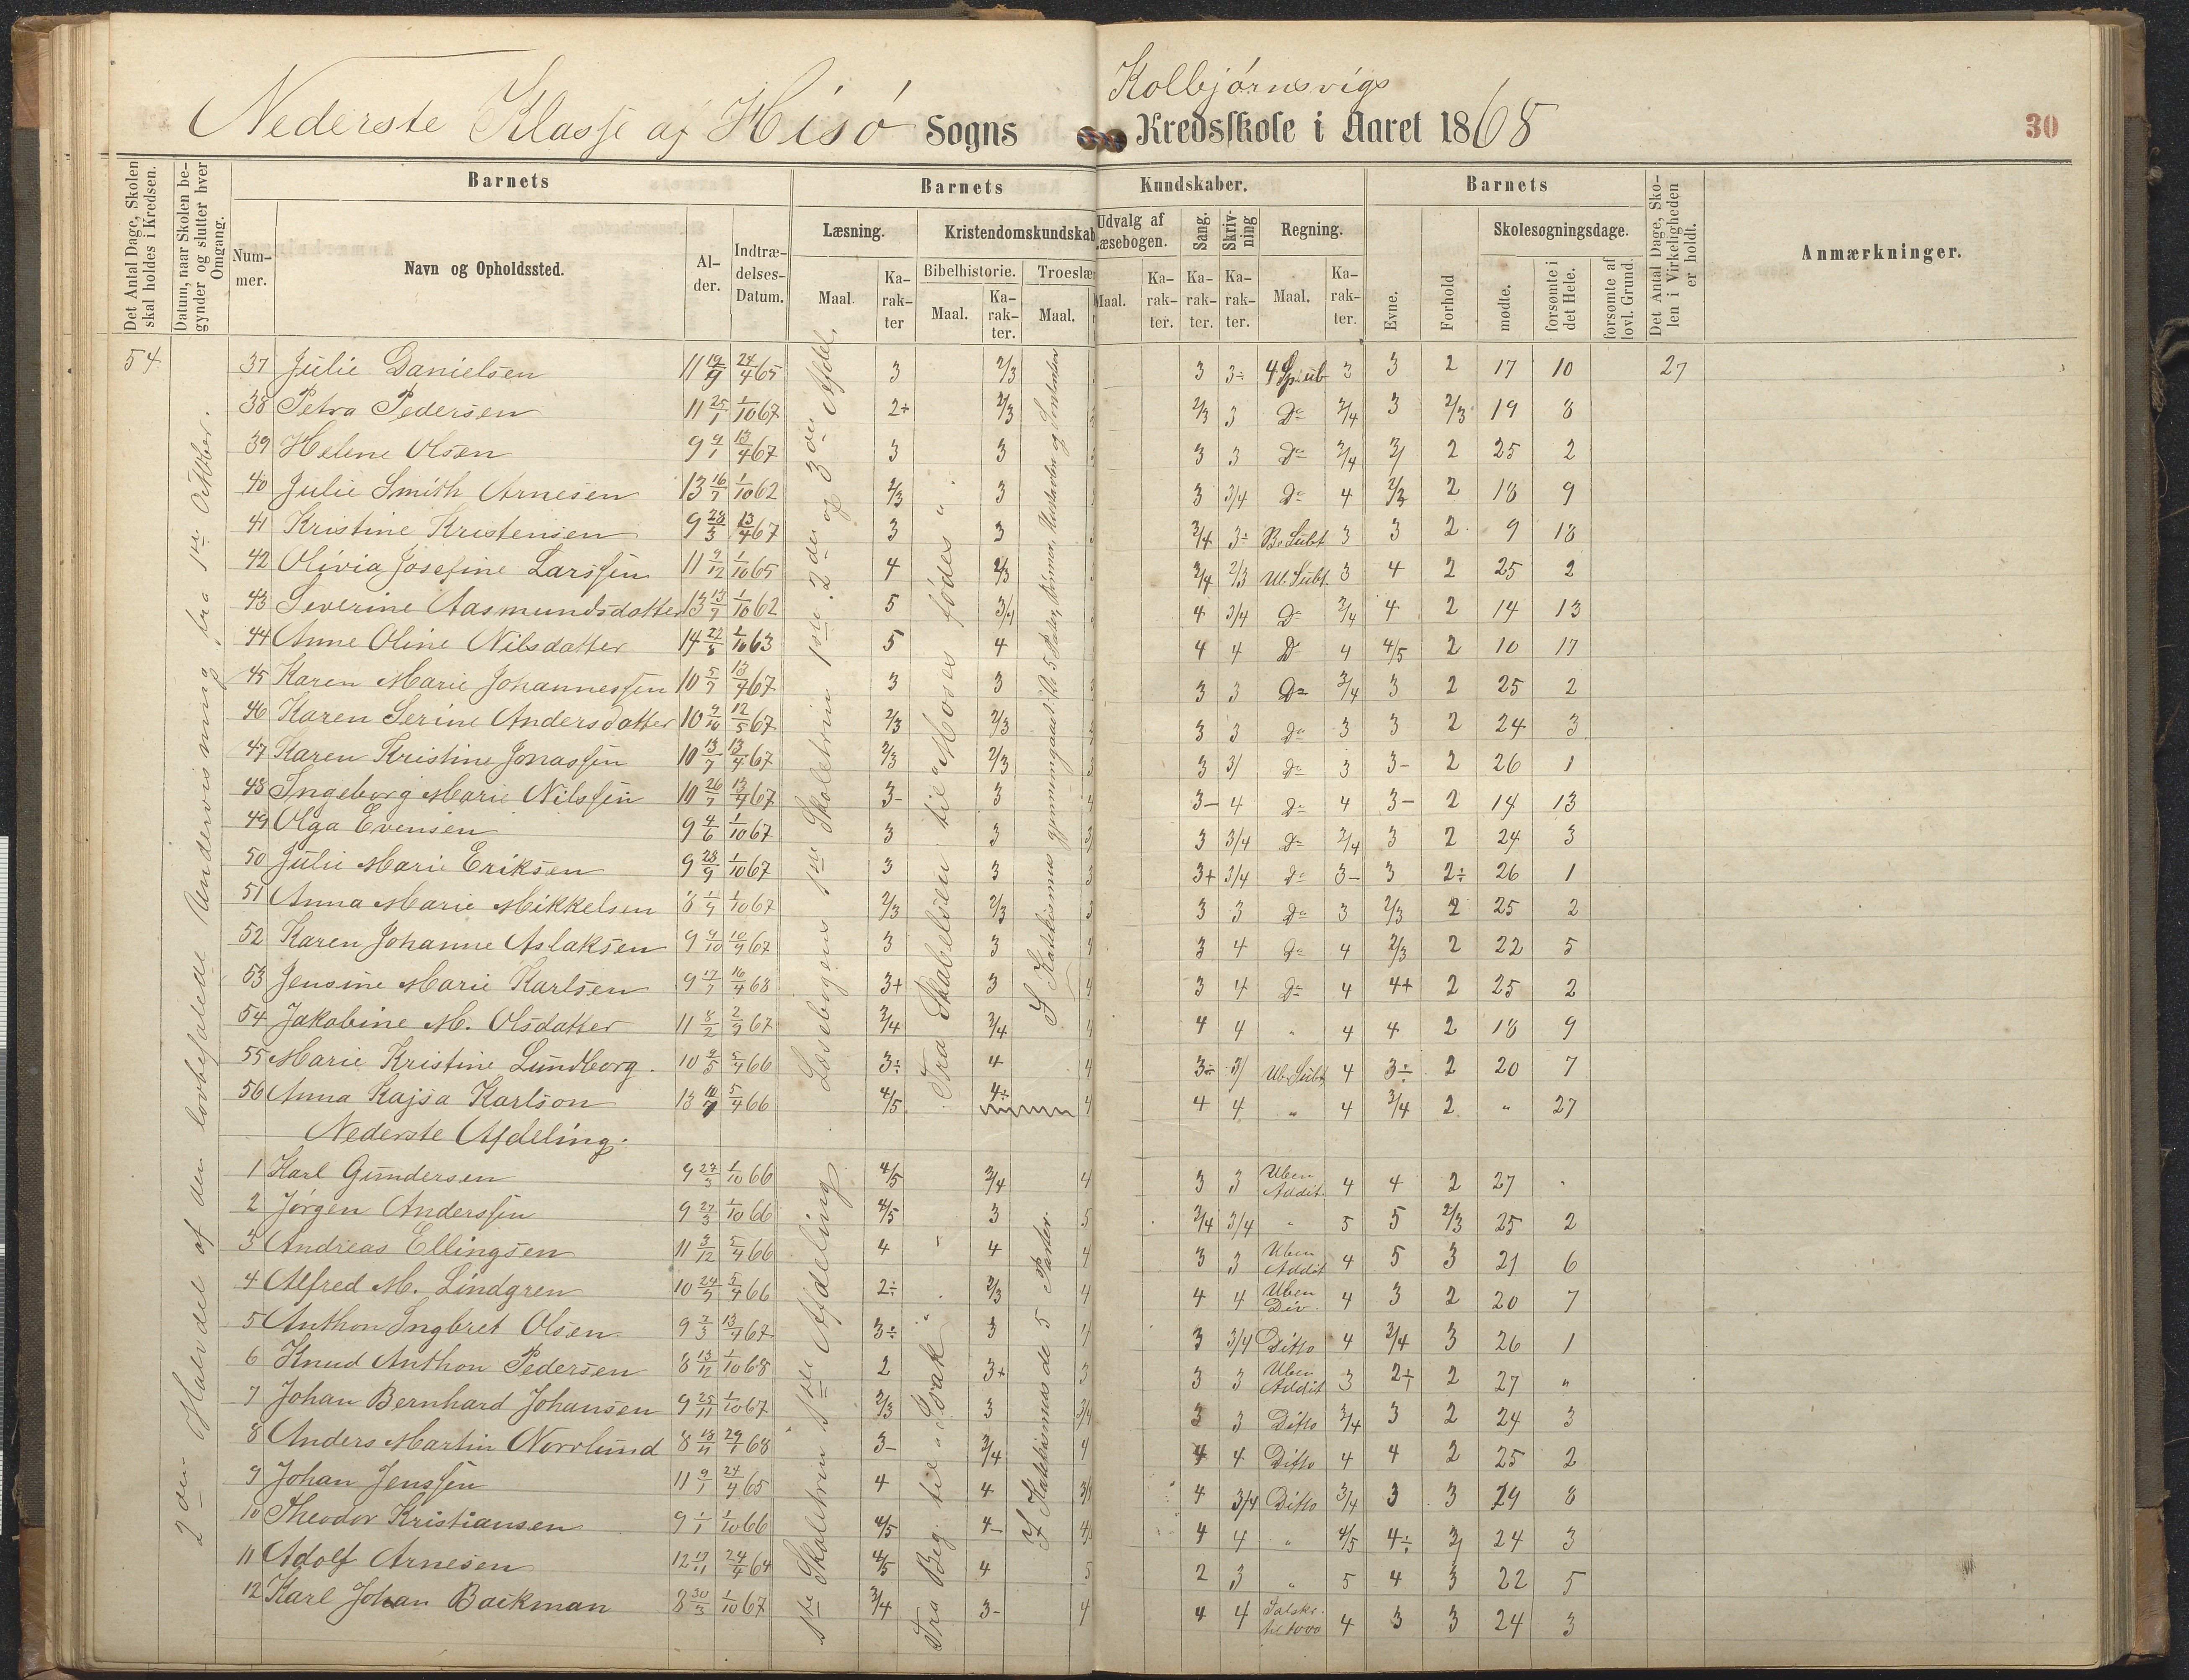 Nederste Klasse af Hisø Sogns
Kolbjørnsvigs
Kredsskole i Aaret 1868
30
Det Antal Dage, Skolen skal holdes i Kredsen.
Datum, naar Skolen begynder og slutter hver Omgang.
Barnets
Barnets
Kundskaber.
Barnets
Det Antal Dage, Skolen i Virkeligheden er holdt.
Anmærkninger.
Nummer.
Navn og Opholdssted.
Alder.
Indtrædelses-Datum.
Læsning.
Kristendomskundskab
Udvalg af Læsebogen.
Sang.
Skrivning
Regning.
Evne.
Forhold
Skolesøgningsdage.
Maal.
Karakter
Bibelhistorie.
Troeslær
Maal.
Karakter.
Maal.
Maal.
Karakter.
Karakter.
Karakter.
Maal.
Karakter.
mødte.
forsømte i det Hele.
forsømte af lovl. Grund.
54
2den Halvdel af den lovbefalede Undervisning, fra 1ste Oktober.
Læsebogens 1ste Skoletrin 1ste, 2den og 3die Afdel.
Fra Skabelsen til "Moses fødes"
37 Julie Danielsen 11 19/9 24/4 65 3 2/3 3 3÷ 4 Sp. ub 3 3 2 17 10 27
38 Petra Pedersen 11 25/1 1/10 67 2÷ 2/3 2/3 3 Do 3/4 3 2/3 19 8
39 Helene Olsen 9 9/1 13/4 67 3 3 3 3 Do 3/4 3/ 2 25 2
40 Julie Smith Arnesen 13 16/7 1/10 62 2/3 3 3 3/4 Do 4 2/3 2 18 9
41 Kristine Kristensen 9 28/3 13/4 67 3 3 3/4 3÷ Be Subt 3 3 2 9 18
42 Olivia Josefine Larssen 11 9/12 1/10 65 4 2/3 3/4 2/3 Ub. Subt. 3 4 2 25 2
43 Severine Aasmundsdatter 13 13/7 1/10 62 5 3/4 4 3/4 Do 3/4 4 2 14 13
44 Anne Oline Nilsdatter 14 22/8 1/10 63 5 4 4 4 D 4 4/5 2 10 17
45 Karen Marie Johannessen 10 5/7 13/4 67 3 3 3 3 Do 3/4 3 2 25 2
46 Karen Serine Andersdatter 10 9/10 12/5 67 2/3 2/3 3 3 do 3 3 2 24 3
47 Karen Kristine Jonassen 10 13/7 13/4 67 2/3 2/3 3 3/ do 3 3- 2 26 1
48 Ingeborg Marie Nilssen 10 26/7 13/4 67 3- 3 3- 4 do 4 3- 2 14 13
49 Olga Evensen 9 4/6 1/10 67 3 3 3 3/4 do 3/4 3 2 24 3
50 Julie Marie Eriksen 9 28/9 1/10 67 3 3 3+ 3/4 do 3- 3 2÷ 26 1
51 Anna Marie Mikkelsen 8 1/10 67 2/3 2/3 3 3 do 3 2/3 2 25 2
52 Karen Johanne Aslaksen 9 9/10 10/9 67 3 3 3 4 do 4 2/3 2 22 5
53 Jensine Marie Karlsen 9 17/7 16/4 68 3+ 3 3 4 do 4 4+ 2 25 2
54 Jakobine M. Olsdatter 11 8/2 2/9 67 3/4 3/4 4 4 " 4 4 2 18 9
55 Marie Kristine Lundborg. 10 9/5 5/4 66 3÷ 4 3÷ 3/ Ub. Subt 4 3÷ 2 20 7
56 Anna Kajsa Karlson 13 5/4 66 4/5 4÷ 4 4 " 4 3/4 2 " 27
Nederste Afdeling.
1ste Skoletrin 1ste Afdeling
Fra Beg. til "Isak"
I Katekismus de 5 Parter.
1 Karl Gundersen 9 27/3 1/10 66 4/5 3/4 4 3 3 Uben Addit. 4 4 2 27 "
2 Jørgen Anderssen 9 27/3 1/10 66 4/5 3 5 3/4 3/4 " 5 5 2/3 25 2
3 Andreas Ellingsen 11 3/12 5/4 66 4 4 4 3 3 Uben Addit 4 5 3 21 6
4 Alfred M. Lindgren 10 24/7 5/4 66 2÷ 2/3 4 4 4 Uben Div. 4 3 2 20 7
5 Anthon Ingbret Olsen 9 2/3 13/4 67 3÷ 3 3 3/4 Ditto 4 3/4 3 26 1
6 Knud Anthon Pedersen 8 13/12 1/10 68 2 3+ 3 3 3 Uben Addit 3 2+ 2 27 "
7 Johan Bernhard Johansen 9 25/11 1/10 67 2/3 3 3/4 3 3 Ditto 3/4 3 2 24 3
8 Anders Martin Norrlund 8 18/11 29/1 68 3- 3/4 4 4 4 Ditto 4 4 2 25 2
9 Johan Jenssen 11 9/1 24/4 65 4 4 4 3/4 Ditto 3/4 3 3 19 8
10 Theodor Kristiansen 9 1/1 1/10 66 4/5 4- 4 4 " 4/5 4÷ 3/ 24 3
11 Adolf Arnesen 12 17/11 24/4 64 4/5 4 5 2 3 " 5 4 3 22 5
12 Karl Johan Backman 8 30/3 1/10 67 3/4 3- 4 4 4 Talskr. til 1000 4 3 3 24 3